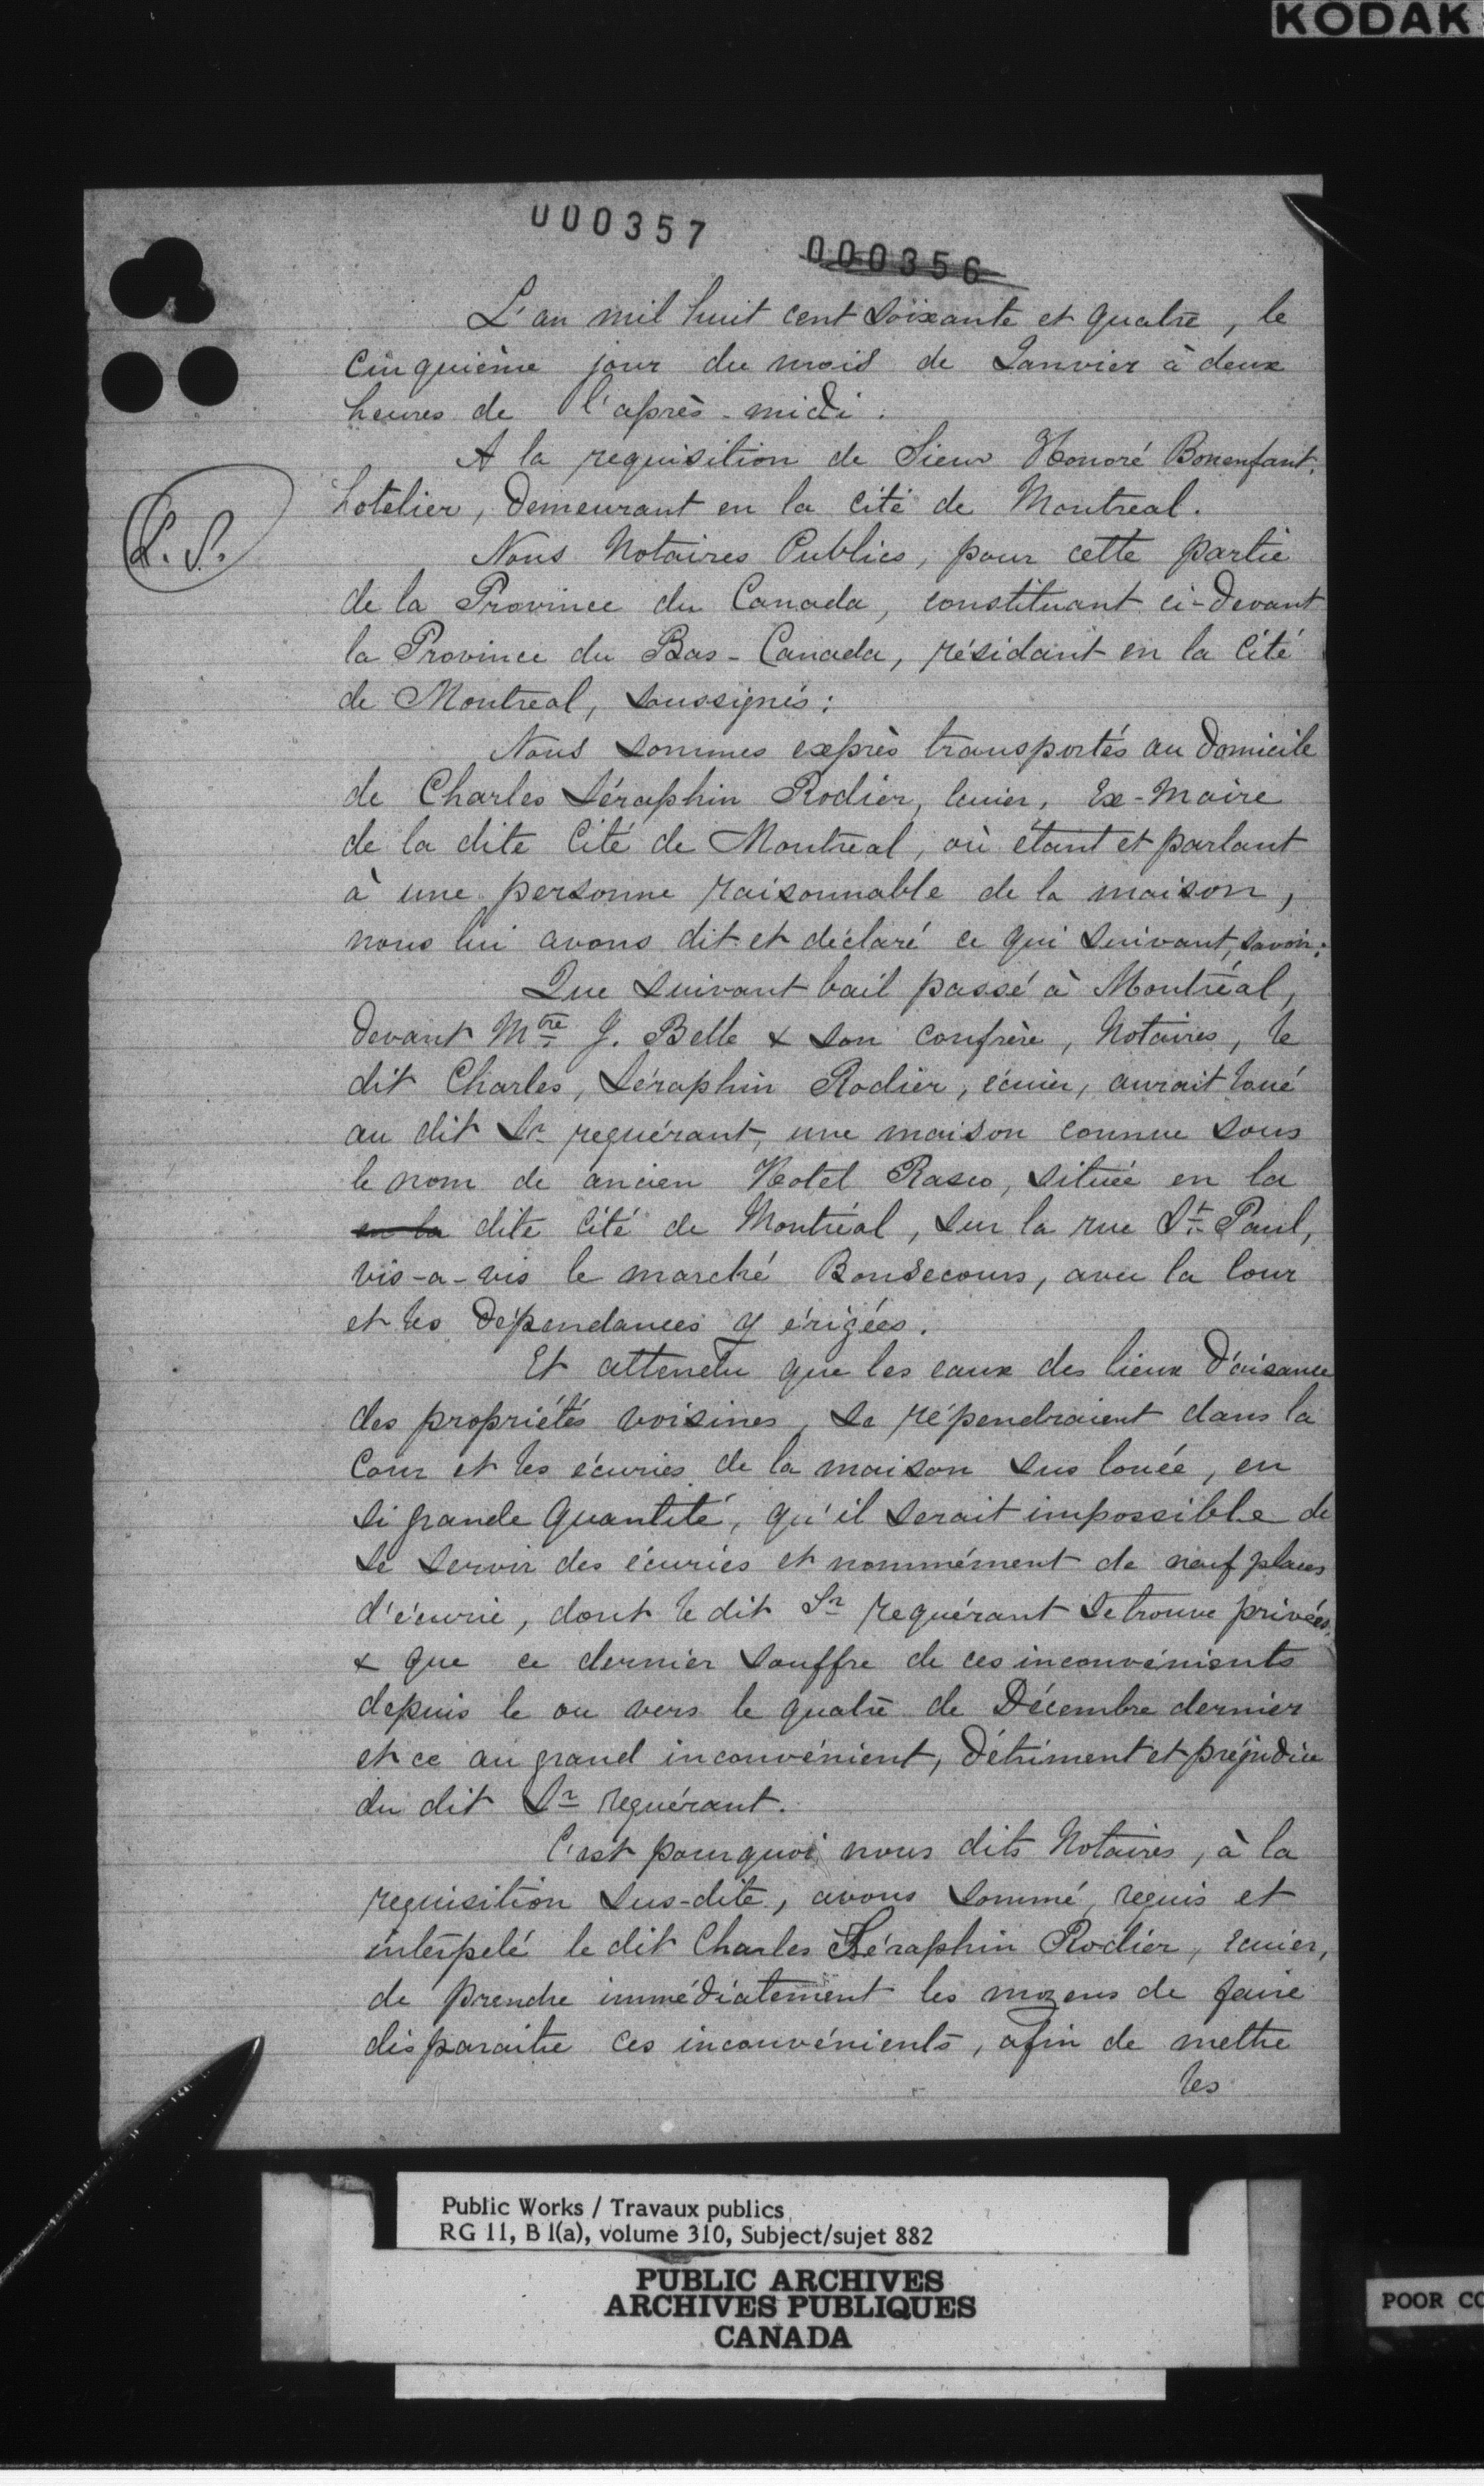 KODAK
000357
000356
L'an mil huit cent soixante et quatre, le
cinquième jour du mois de Janvier à deux
heures de l'après-midi.
A la requisition de Sieur Honoré Bonenfant,
hotelier, demeurant en la cité de Montreal.
L. S.
Nous Notaires Publics, pour cette partie
de la Province du Canada, constituant ci-devant
la Province du Bas-Canada, résidant en la Cité
de Montreal, soussignés:
Nous sommes exprès transportés au domicile
de Charles Séraphin Rodier, Ecuier, Ex-Maire
de la dite Cité de Montreal, où étant et parlant
à une personne raisonnable de la maison,
nous lui avons dit et déclaré ce qui suivant, savoir:
Que suivant bail passé à Montréal,
devant Mtre J. Belle & son confrère, Notaires, le
dit Charles, Séraphin Rodier, écuier, aurait loué
au dit Sr requérant, une maison connue sous
le nom de ancien Hotel Rasco, située en la
en la dite cité de Montréal, sur la rue St. Paul,
vis-a-vis le marché Bonsecours, avec la Cour
et les dépendances y érigées.
Et attendu que les eaux des lieux d'aisance
des propriétés voisines, se répendraient dans la
Cour et les écuries de la maison sus louée, en
si grande quantité, qu'il serait impossible de
se servir des écuries et nommément de neuf places
d'écurie, dont le dit Sr requérant se trouve privées,
& que ce dernier souffre de ces inconvénients
depuis le ou vers le quatre de Décembre dernier
et ce au grand inconvénient, détriment et préjudice
du dit Sr requérant.
C'est pourquoi nous dits Notaires, à la
requisition sus-dite, avons sommé, requis et
interpelé le dit Charles Séraphin Rodier, Ecuier,
de prendre immédiatement les moyens de faire
disparaitre ces inconvénients, afin de mettre
les
Public Works / Travaux publics
RG 11, B 1(a), volume 310, Subject/sujet 882
PUBLIC ARCHIVES
ARCHIVES PUBLIQUES
CANADA
POOR CO